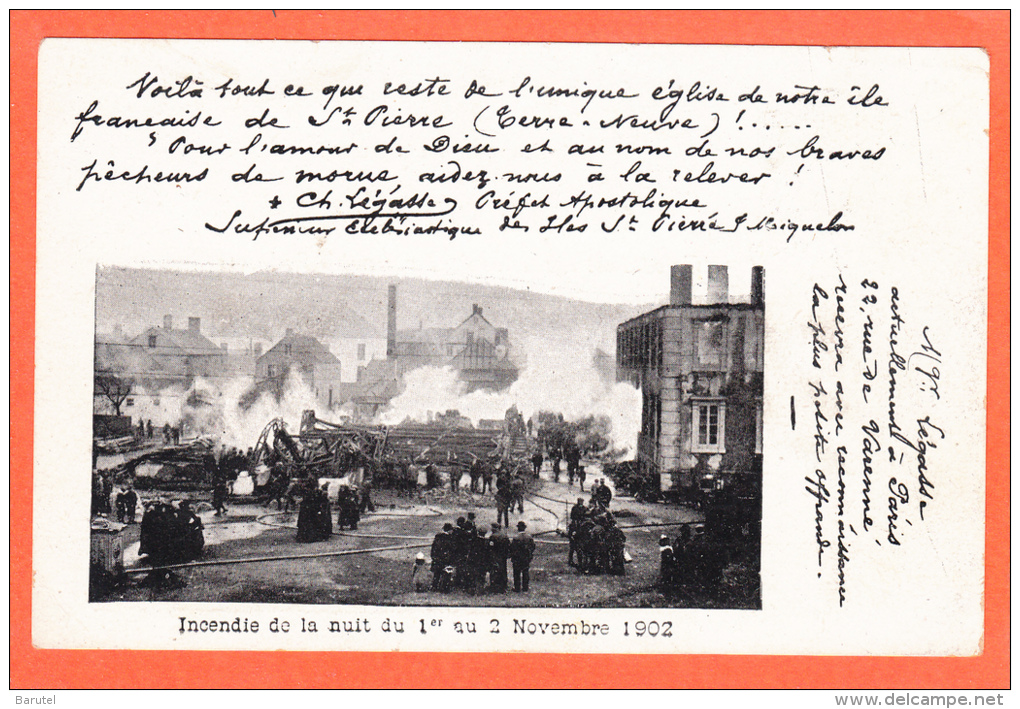 Voilà tout ce que reste de l'unique église de notre île
française de St Pierre (Terre-Neuve)!......
" Pour l'amour de Dieu et au nom de nos braves
pêcheurs de morue aidez-nous à la relever !
+ Ch. Légasse, Préfet Apostolique
Supérieur Ecclésiastique des Iles St Pierre & Miquelon
Mgr. Légasse
actuellement à Paris
22, rue de Varenne
recevra avec reconnaissance
la plus petite offrande.
Incendie de la nuit du 1er au 2 Novembre 1902
Barutel
www.delcampe.net